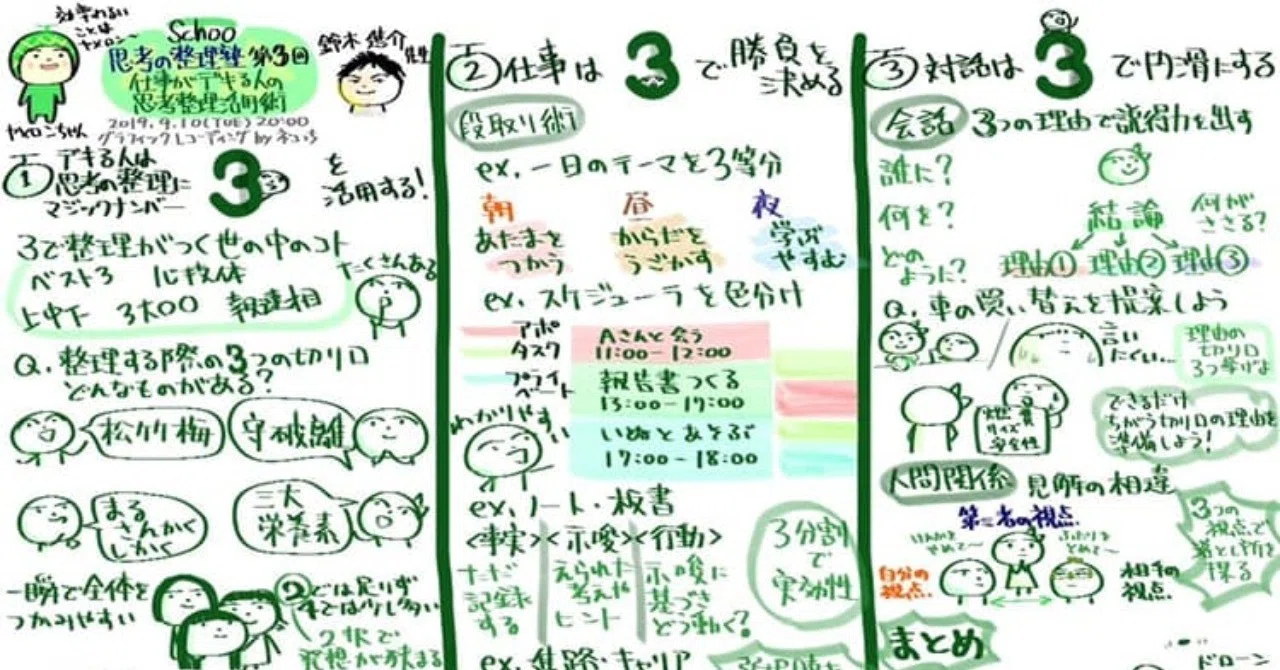 効率わるい
ことは
ヤメロン〜
ヤメロンちゃん
Schoo
思考の整理塾 第3回
仕事がデキる人の
思考整理活用術
2019.9.10(TUE)20:00
グラフィックレコーディング by
鈴木 悠介
先生
① デキる人は
思考の整理に
マジックナンバー
3を
活用する!
3で整理がつく世の中のコト
ベスト3 心技体
上中下 3大〇〇 報連相
たくさんある
Q.整理する際の3つの切り口
どんなものがある?
松竹梅
守破離
まる
さんかく
しかく
三大
栄養素
一瞬で全体を
つかみやすい
2では足りず
4では少し多い
2択で
発想が狭まる
② 仕事は3で勝負を
決める
段取り術
ex.一日のテーマを3等分
朝 昼 夜
あたまを
つかう
からだを
うごかす
学ぶ
やすむ
ex.スケジューラを色分け
アポ
タスク
プライ
ベート
Aさんと会う
11:00-12:00
報告書つくる
13:00-17:00
いぬとあそぶ
17:00-18:00
わかりやすい
ex.ノート・板書
<事実><示唆><行動>
ただ
記録
する
えられた
考えや
ヒント
示唆に
基づき
どう動く?
3分割
で
実効性
ex.進路・キャリア
③ 対話は3で円滑にする
会話 3つの理由で説得力を出す
誰に?
何を?
どの
ように?
結論
何が
ささる?
理由① 理由② 理由③
Q.車の買い替えを提案しよう
言い
にくい…
理由の
切り口
3つ挙げよ
燃費
サイズ
安全性
できるだけ
ちがう切り口の理由を
準備しよう!
人間関係 見解の相違
第三者の視点
けんかを
やめて〜
ふたりを
とめて〜
自分の
視点
相手の
視点
3つの
視点で
落とし所を
探る
まとめ
ドローン